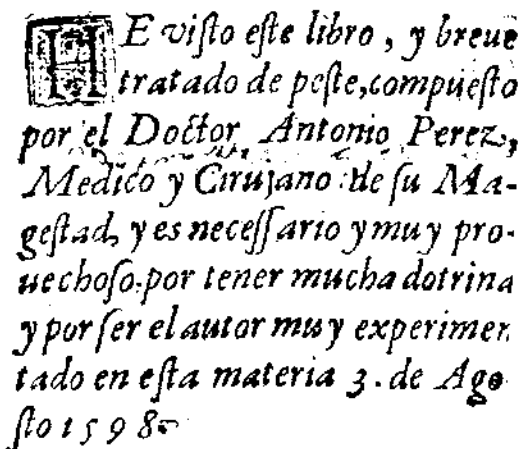 HE visto este libro, y breue
tratado de peste, compuesto
por el Doctor Antonio Perez,
Medico y Cirujano de su Ma-
gestad, y es necessario y muy pro-
uechoso, por tener mucha dotrina
y por ser el autor muy experimen
tado en esta materia 3. de Ago
sto 1598